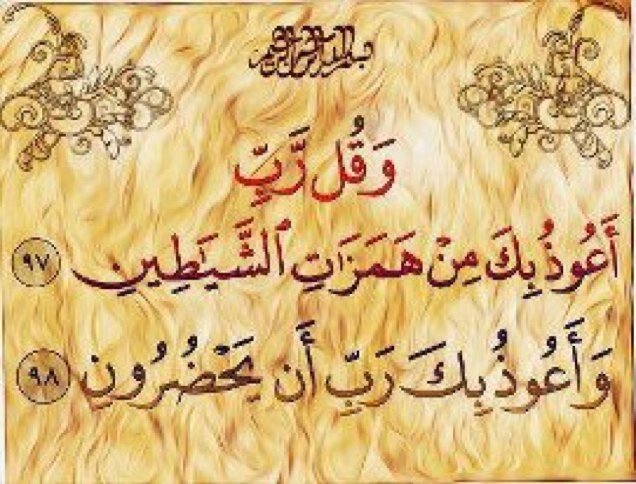 بسم الله الرحمن الرحيم
وَقُل رَّبِّ
أَعُوذُ بِكَ مِنْ هَمَزَاتِ ٱلشَّيَـٰطِينِ ٩٧
وَأَعُوذُ بِكَ رَبِّ أَن يَحْضُرُونِ ٩٨